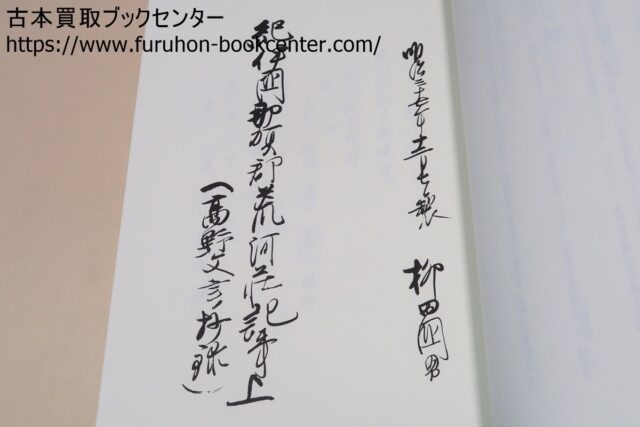 古本買取ブックセンター
https://www.furuhon-bookcenter.com/
明治三十 年十二月 製 柳田國男
紀伊國那賀郡荒河荘記事上
(高野文書ノ抄録)